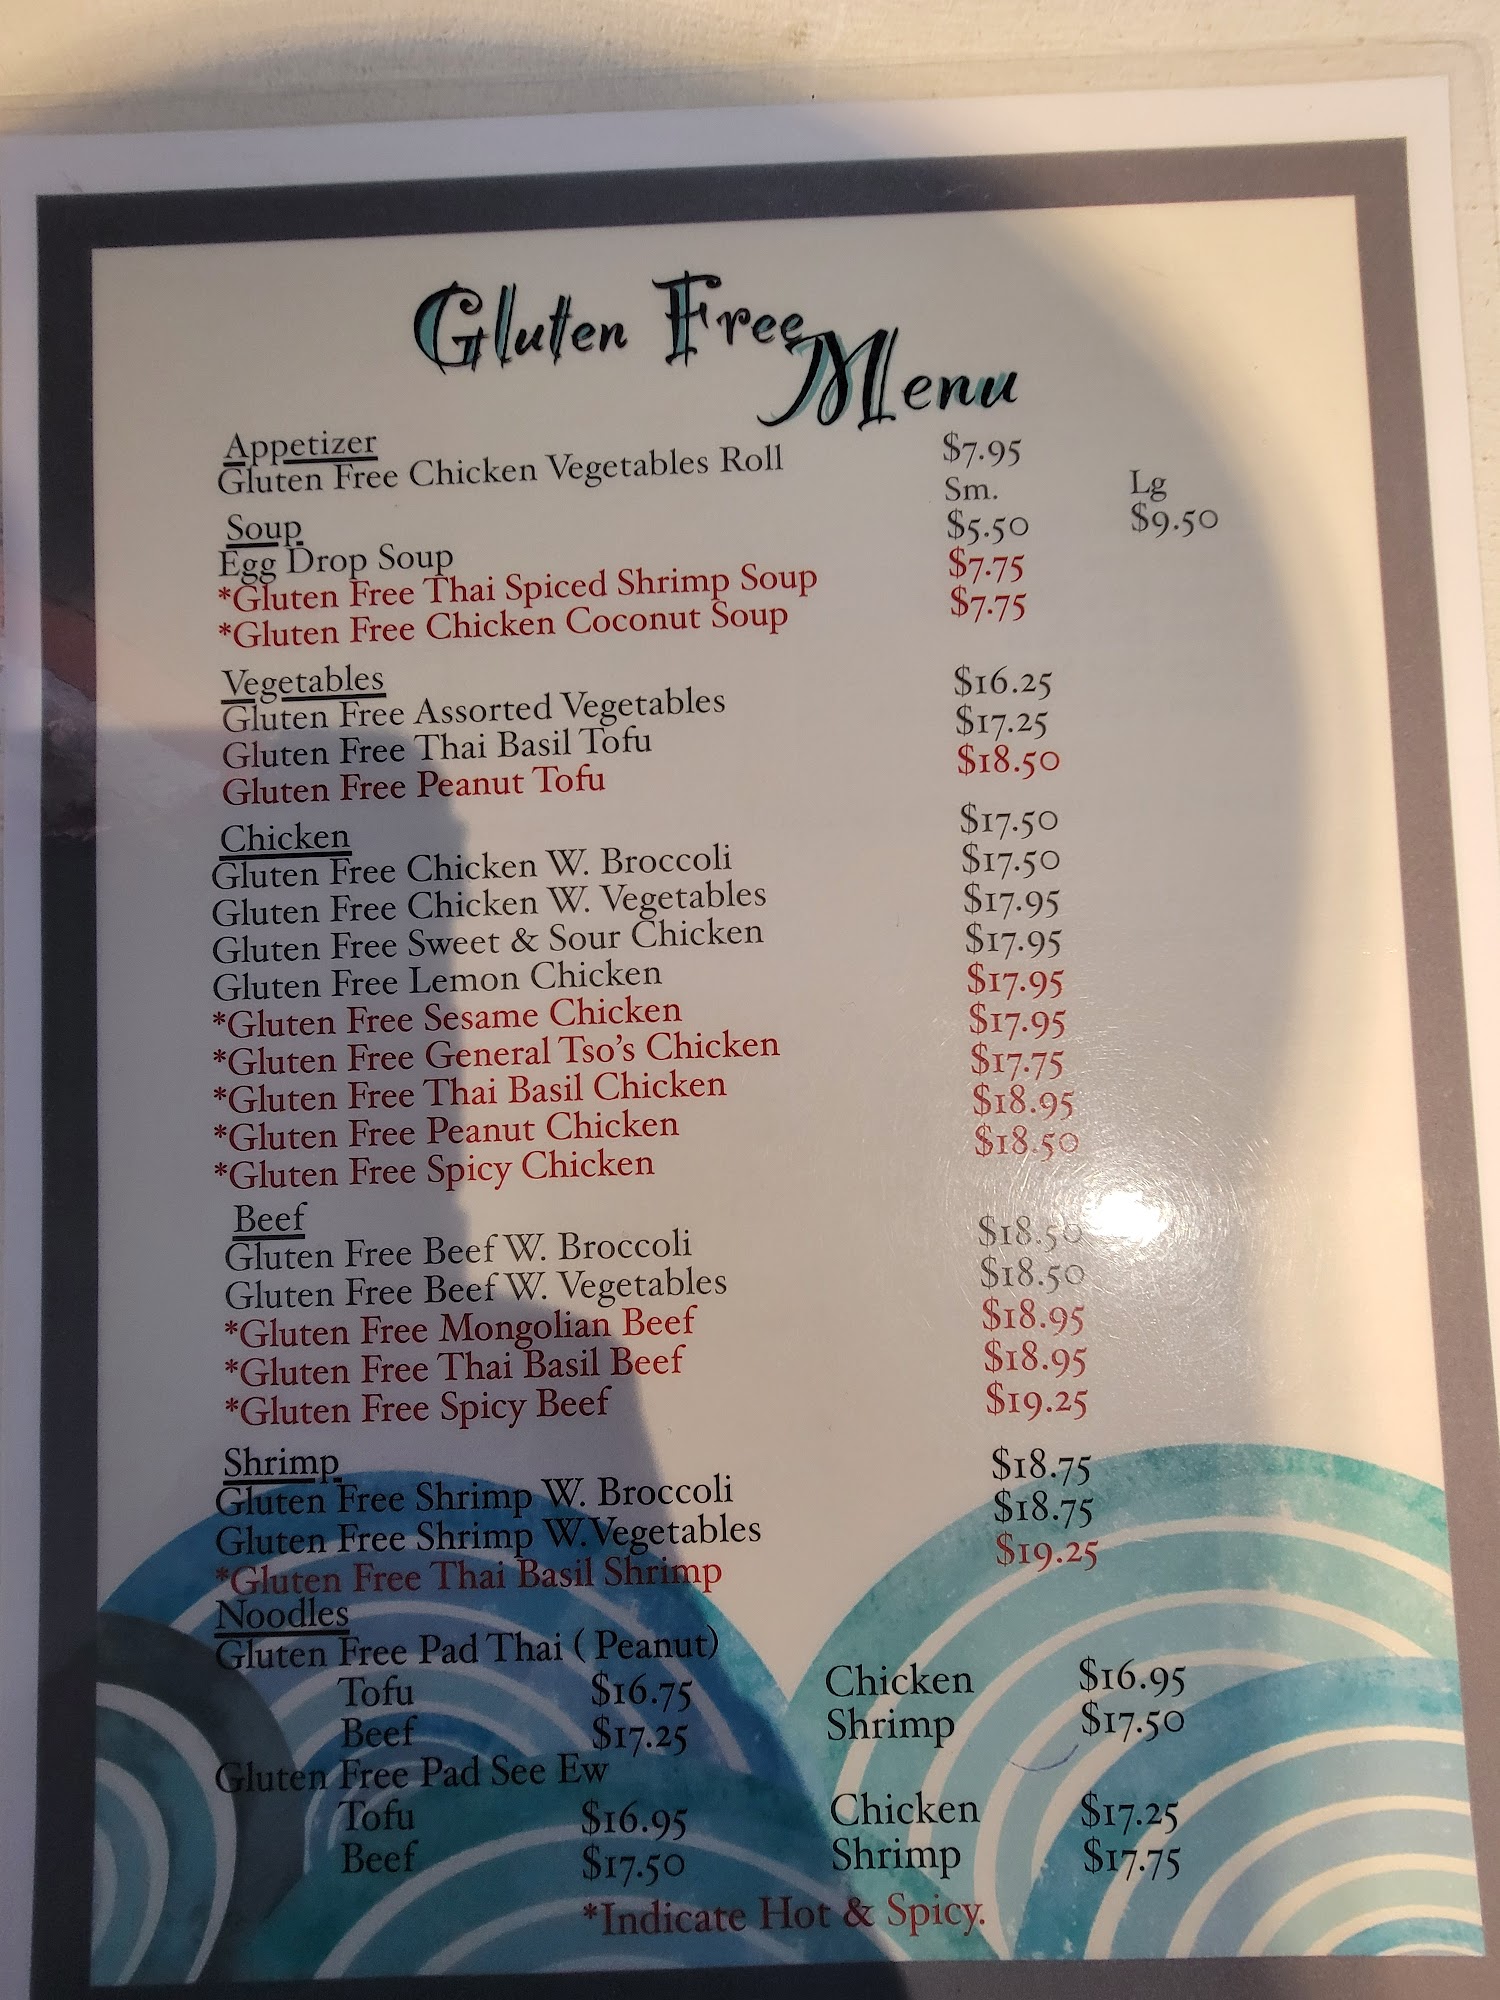 Gluten Free
Menu
Appetizer
Gluten Free Chicken Vegetables Roll $7.95
Sm. Lg
Soup
Egg Drop Soup $5.50 $9.50
*Gluten Free Thai Spiced Shrimp Soup $7.75
*Gluten Free Chicken Coconut Soup $7.75
Vegetables
Gluten Free Assorted Vegetables $16.25
Gluten Free Thai Basil Tofu $17.25
Gluten Free Peanut Tofu $18.50
Chicken
Gluten Free Chicken W. Broccoli $17.50
Gluten Free Chicken W. Vegetables $17.50
Gluten Free Sweet & Sour Chicken $17.95
Gluten Free Lemon Chicken $17.95
*Gluten Free Sesame Chicken $17.95
*Gluten Free General Tso's Chicken $17.95
*Gluten Free Thai Basil Chicken $17.75
*Gluten Free Peanut Chicken $18.95
*Gluten Free Spicy Chicken $18.50
Beef
Gluten Free Beef W. Broccoli $18.50
Gluten Free Beef W. Vegetables $18.50
*Gluten Free Mongolian Beef $18.95
*Gluten Free Thai Basil Beef $18.95
*Gluten Free Spicy Beef $19.25
Shrimp
Gluten Free Shrimp W. Broccoli $18.75
Gluten Free Shrimp W.Vegetables $18.75
*Gluten Free Thai Basil Shrimp $19.25
Noodles
Gluten Free Pad Thai ( Peanut)
Tofu $16.75 Chicken $16.95
Beef $17.25 Shrimp $17.50
Gluten Free Pad See Ew
Tofu $16.95 Chicken $17.25
Beef $17.50 Shrimp $17.75
*Indicate Hot & Spicy.